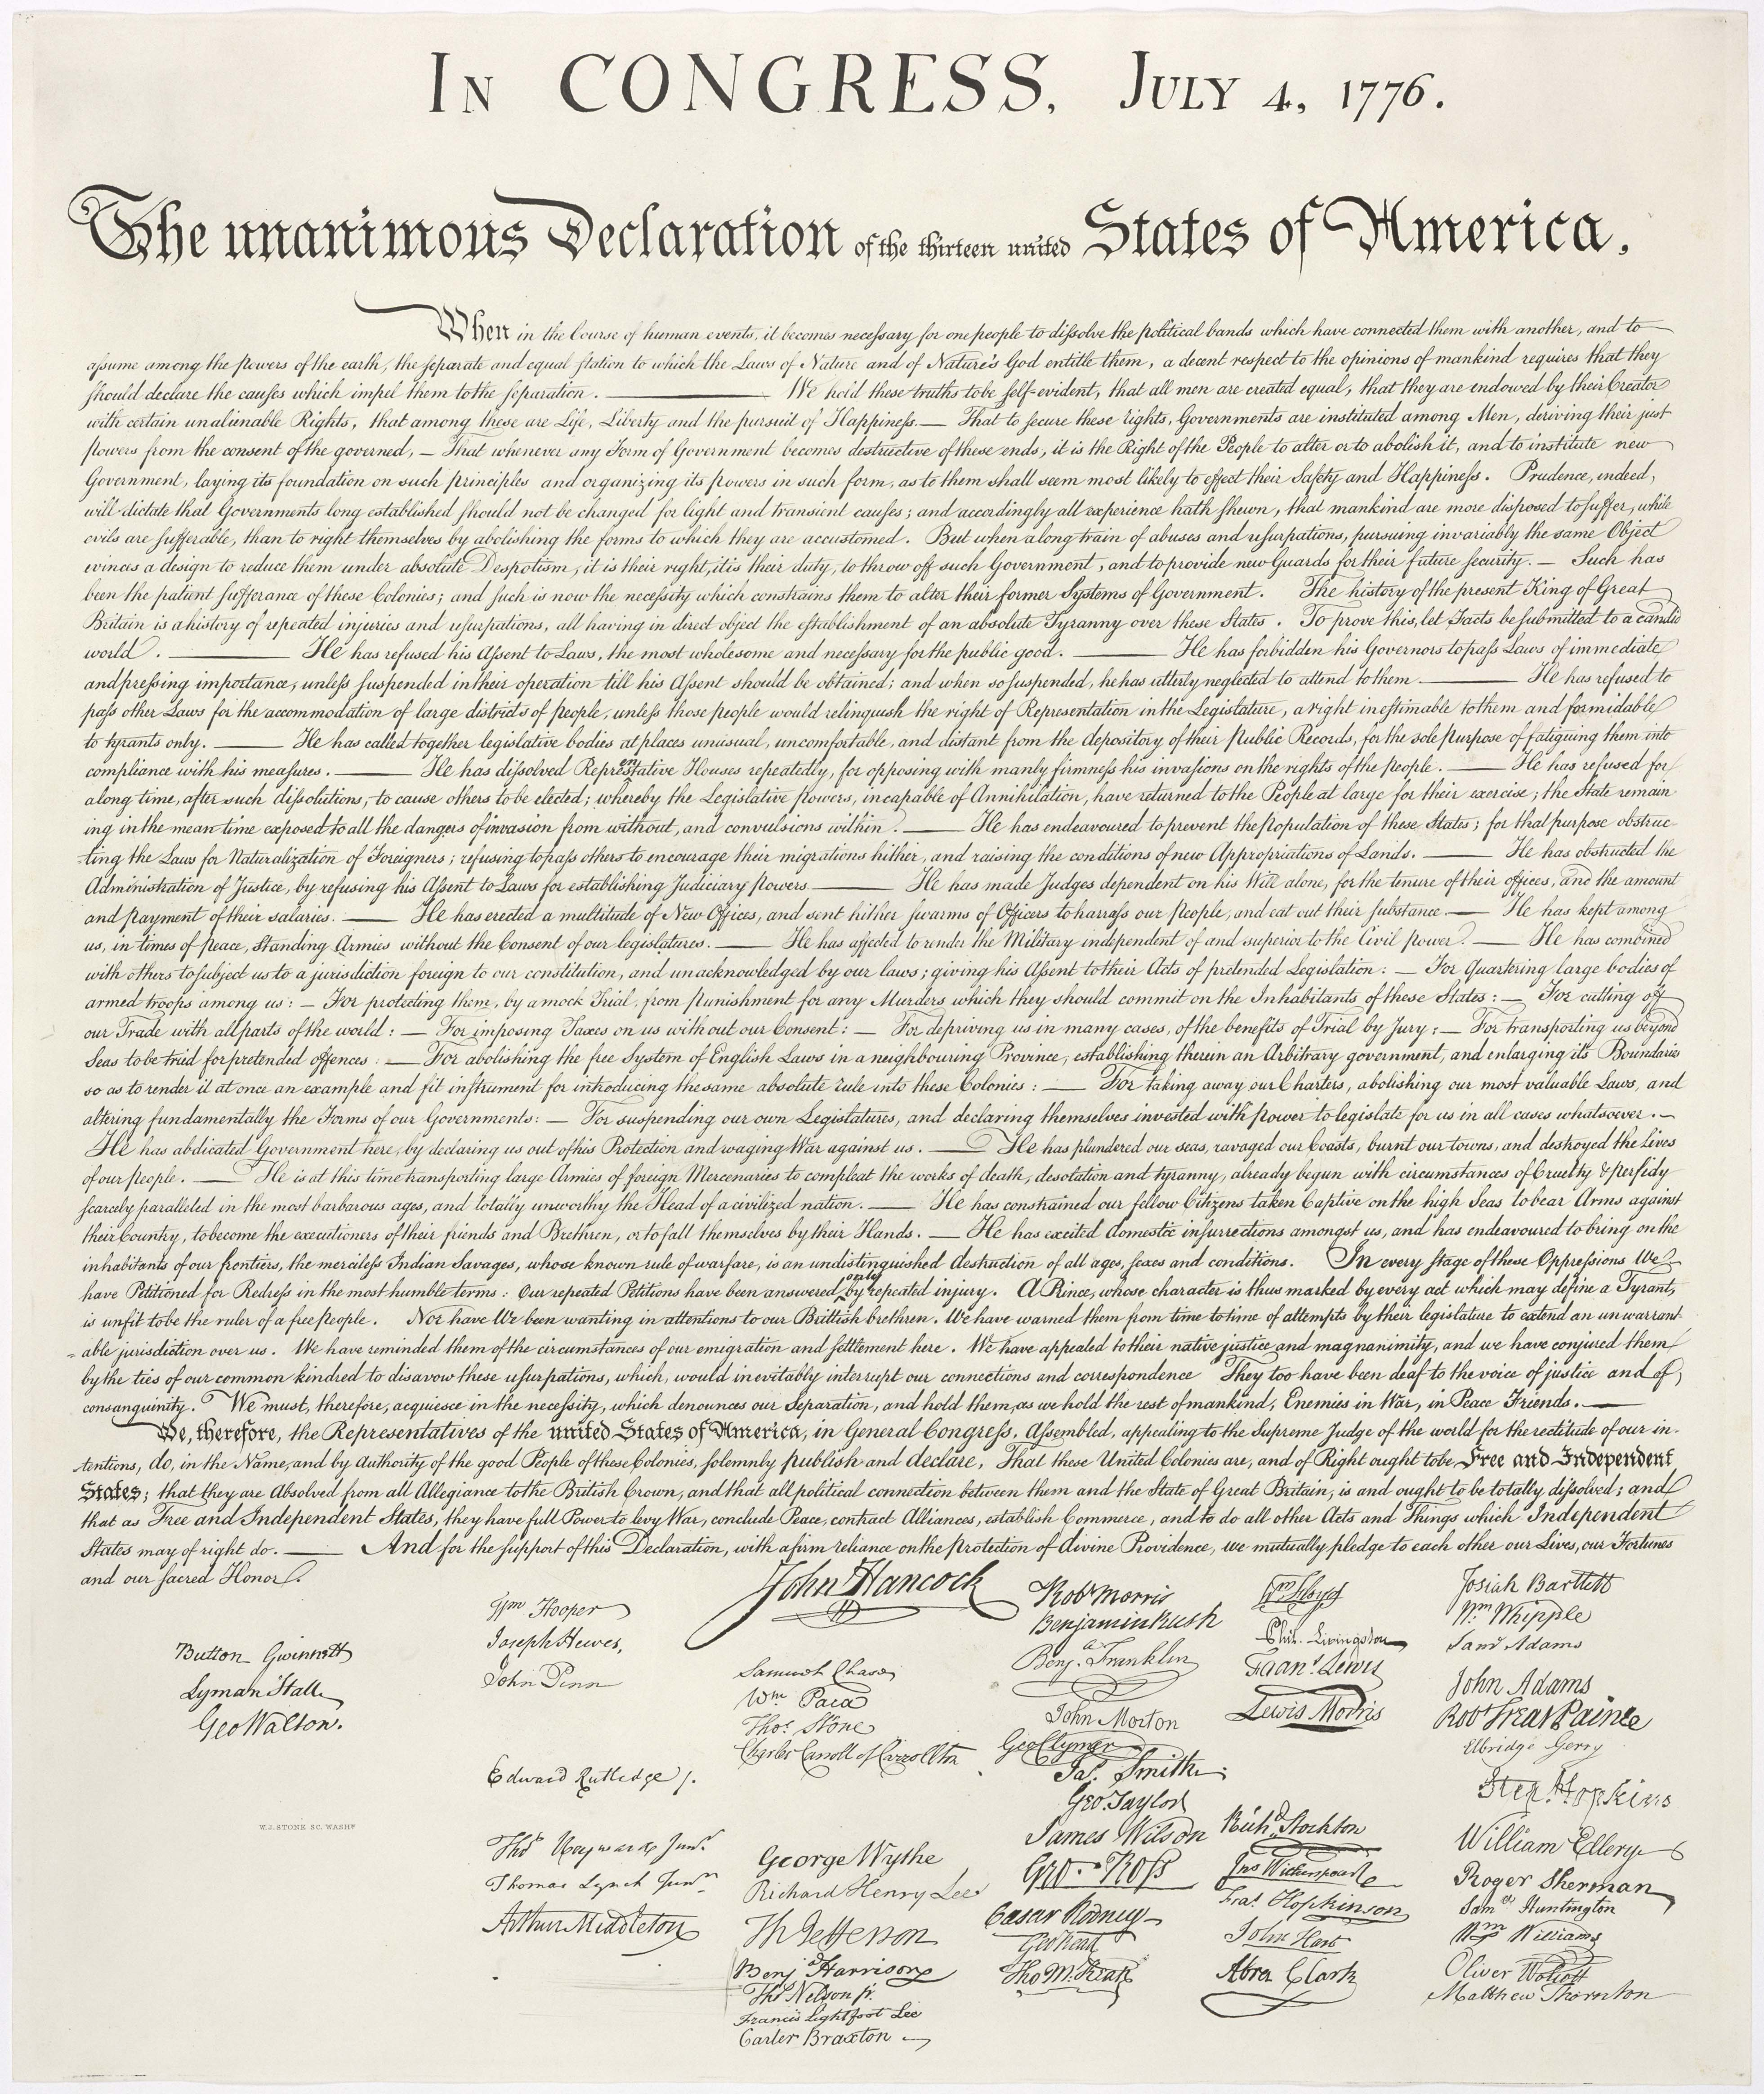 In CONGRESS, July 4, 1776.
The unanimous Declaration of the thirteen united States of America,
When in the Course of human events, it becomes necessary for one people to dissolve the political bands which have connected them with another, and to
assume among the powers of the earth, the separate and equal station to which the Laws of Nature and of Nature's God entitle them, a decent respect to the opinions of mankind requires that they
should declare the causes which impel them to the separation. ——— We hold these truths to be self-evident, that all men are created equal, that they are endowed by their Creator
with certain unalienable Rights, that among these are Life, Liberty and the pursuit of Happiness.— That to secure these rights, Governments are instituted among Men, deriving their just
powers from the consent of the governed, — That whenever any Form of Government becomes destructive of these ends, it is the Right of the People to alter or to abolish it, and to institute new
Government, laying its foundation on such principles and organizing its powers in such form, as to them shall seem most likely to effect their Safety and Happiness. Prudence, indeed,
will dictate that Governments long established should not be changed for light and transient causes; and accordingly all experience hath shewn, that mankind are more disposed to suffer, while
evils are sufferable, than to right themselves by abolishing the forms to which they are accustomed. But when a long train of abuses and usurpations, pursuing invariably the same Object
evinces a design to reduce them under absolute Despotism, it is their right, it is their duty, to throw off such Government, and to provide new Guards for their future security. — Such has
been the patient sufferance of these Colonies; and such is now the necessity which constrains them to alter their former Systems of Government. The history of the present King of Great
Britain is a history of repeated injuries and usurpations, all having in direct object the establishment of an absolute Tyranny over these States. To prove this, let Facts be submitted to a candid
world. ——— He has refused his Assent to Laws, the most wholesome and necessary for the public good. ——— He has forbidden his Governors to pass Laws of immediate
and pressing importance, unless suspended in their operation till his Assent should be obtained; and when so suspended, he has utterly neglected to attend to them. ——— He has refused to
pass other Laws for the accommodation of large districts of people, unless those people would relinquish the right of Representation in the Legislature, a right inestimable to them and formidable
to tyrants only. ——— He has called together legislative bodies at places unusual, uncomfortable, and distant from the depository of their Public Records, for the sole purpose of fatiguing them into
compliance with his measures. ——— He has dissolved Representative Houses repeatedly, for opposing with manly firmness his invasions on the rights of the people. ——— He has refused for
a long time, after such dissolutions, to cause others to be elected; whereby the Legislative powers, incapable of Annihilation, have returned to the People at large for their exercise; the State remain
ing in the mean time exposed to all the dangers of invasion from without, and convulsions within. ——— He has endeavoured to prevent the population of these States; for that purpose obstruc-
ting the Laws for Naturalization of Foreigners; refusing to pass others to encourage their migrations hither, and raising the conditions of new Appropriations of Lands. ——— He has obstructed the
Administration of Justice, by refusing his Assent to Laws for establishing Judiciary powers. ——— He has made Judges dependent on his Will alone, for the tenure of their offices, and the amount
and payment of their salaries. ——— He has erected a multitude of New Offices, and sent hither swarms of Officers to harrass our people, and eat out their substance. — He has kept among
us, in times of peace, Standing Armies without the Consent of our legislatures. ——— He has affected to render the Military independent of and superior to the Civil power. — He has combined
with others to subject us to a jurisdiction foreign to our constitution, and unacknowledged by our laws; giving his Assent to their Acts of pretended Legislation: — For Quartering large bodies of
armed troops among us: — For protecting them, by a mock Trial, from punishment for any Murders which they should commit on the Inhabitants of these States: — For cutting off
our Trade with all parts of the world: — For imposing Taxes on us without our Consent: — For depriving us in many cases, of the benefits of Trial by Jury: — For transporting us beyond
Seas to be tried for pretended offences: — For abolishing the free System of English Laws in a neighbouring Province, establishing therein an Arbitrary government, and enlarging its Boundaries
so as to render it at once an example and fit instrument for introducing the same absolute rule into these Colonies: — For taking away our Charters, abolishing our most valuable Laws, and
altering fundamentally the Forms of our Governments: — For suspending our own Legislatures, and declaring themselves invested with power to legislate for us in all cases whatsoever. —
He has abdicated Government here, by declaring us out of his Protection and waging War against us. — He has plundered our seas, ravaged our Coasts, burnt our towns, and destroyed the lives
of our people. — He is at this time transporting large Armies of foreign Mercenaries to compleat the works of death, desolation and tyranny, already begun with circumstances of Cruelty & perfidy
scarcely paralleled in the most barbarous ages, and totally unworthy the Head of a civilized nation. — He has constrained our fellow Citizens taken Captive on the high Seas to bear Arms against
their Country, to become the executioners of their friends and Brethren, or to fall themselves by their Hands. — He has excited domestic insurrections amongst us, and has endeavoured to bring on the
inhabitants of our frontiers, the merciless Indian Savages, whose known rule of warfare, is an undistinguished destruction of all ages, sexes and conditions. In every stage of these Oppressions We
have Petitioned for Redress in the most humble terms: Our repeated Petitions have been answered only by repeated injury. A Prince, whose character is thus marked by every act which may define a Tyrant,
is unfit to be the ruler of a free people. Nor have We been wanting in attentions to our Brittish brethren. We have warned them from time to time of attempts by their legislature to extend an unwarrant-
able jurisdiction over us. We have reminded them of the circumstances of our emigration and settlement here. We have appealed to their native justice and magnanimity, and we have conjured them
by the ties of our common kindred to disavow these usurpations, which, would inevitably interrupt our connections and correspondence They too have been deaf to the voice of justice and of
consanguinity. We must, therefore, acquiesce in the necessity, which denounces our Separation, and hold them, as we hold the rest of mankind, Enemies in War, in Peace Friends. —
We, therefore, the Representatives of the united States of America, in General Congress, Assembled, appealing to the Supreme Judge of the world for the rectitude of our in-
tentions, do, in the Name, and by Authority of the good People of these Colonies, solemnly publish and declare, That these United Colonies are, and of Right ought to be Free and Independent
States; that they are Absolved from all Allegiance to the British Crown, and that all political connection between them and the State of Great Britain, is and ought to be totally dissolved; and
that as Free and Independent States, they have full Power to levy War, conclude Peace, contract Alliances, establish Commerce, and to do all other Acts and Things which Independent
States may of right do. — And for the support of this Declaration, with a firm reliance on the protection of divine Providence, we mutually pledge to each other our Lives, our Fortunes
and our sacred Honor.
Button Gwinnett
Lyman Hall
Geo Walton.
W.J. STONE SC. WASHN.
Wm Hooper
Joseph Hewes,
John Penn
Edward Rutledge /.
Thos Heyward Junr.
Thomas Lynch Junr.
Arthur Middleton
John Hancock
Samuel Chase
Wm. Paca
Thos. Stone
Charles Carroll of Carrollton
George Wythe
Richard Henry Lee
Th Jefferson
Benj Harrison
Thos Nelson jr.
Francis Lightfoot Lee
Carter Braxton
Robt Morris
Benjamin Rush
Benj. Franklin
John Morton
Geo Clymer
Jas. Smith
Geo. Taylor
James Wilson
Geo. Ross
Caesar Rodney
Geo Read
Tho M:Kean
Wm Floyd
Phil. Livingston
Frans. Lewis
Lewis Morris
Richd. Stockton
Jno Witherspoon
Fras. Hopkinson
John Hart
Abra Clark
Josiah Bartlett
Wm. Whipple
Saml Adams
John Adams
Robt Treat Paine
Elbridge Gerry
Step. Hopkins
William Ellery
Roger Sherman
Saml Huntington
Wm Williams
Oliver Wolcott
Matthew Thornton